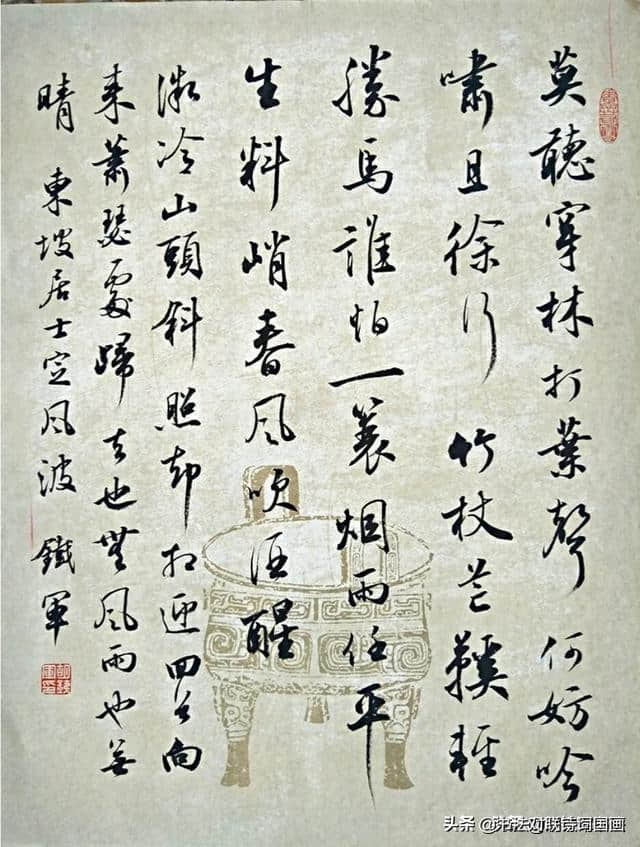 莫聽穿林打葉聲 何妨吟
嘯且徐行 竹杖芒鞵輕
勝馬誰怕一蓑烟雨任平
生料峭春风吹酒醒
微冷山頭斜照却相迎回首向
来蕭瑟處歸去也無风雨也無
晴 東坡居士定风波 鐵軍
头条 @书法对联诗词国画